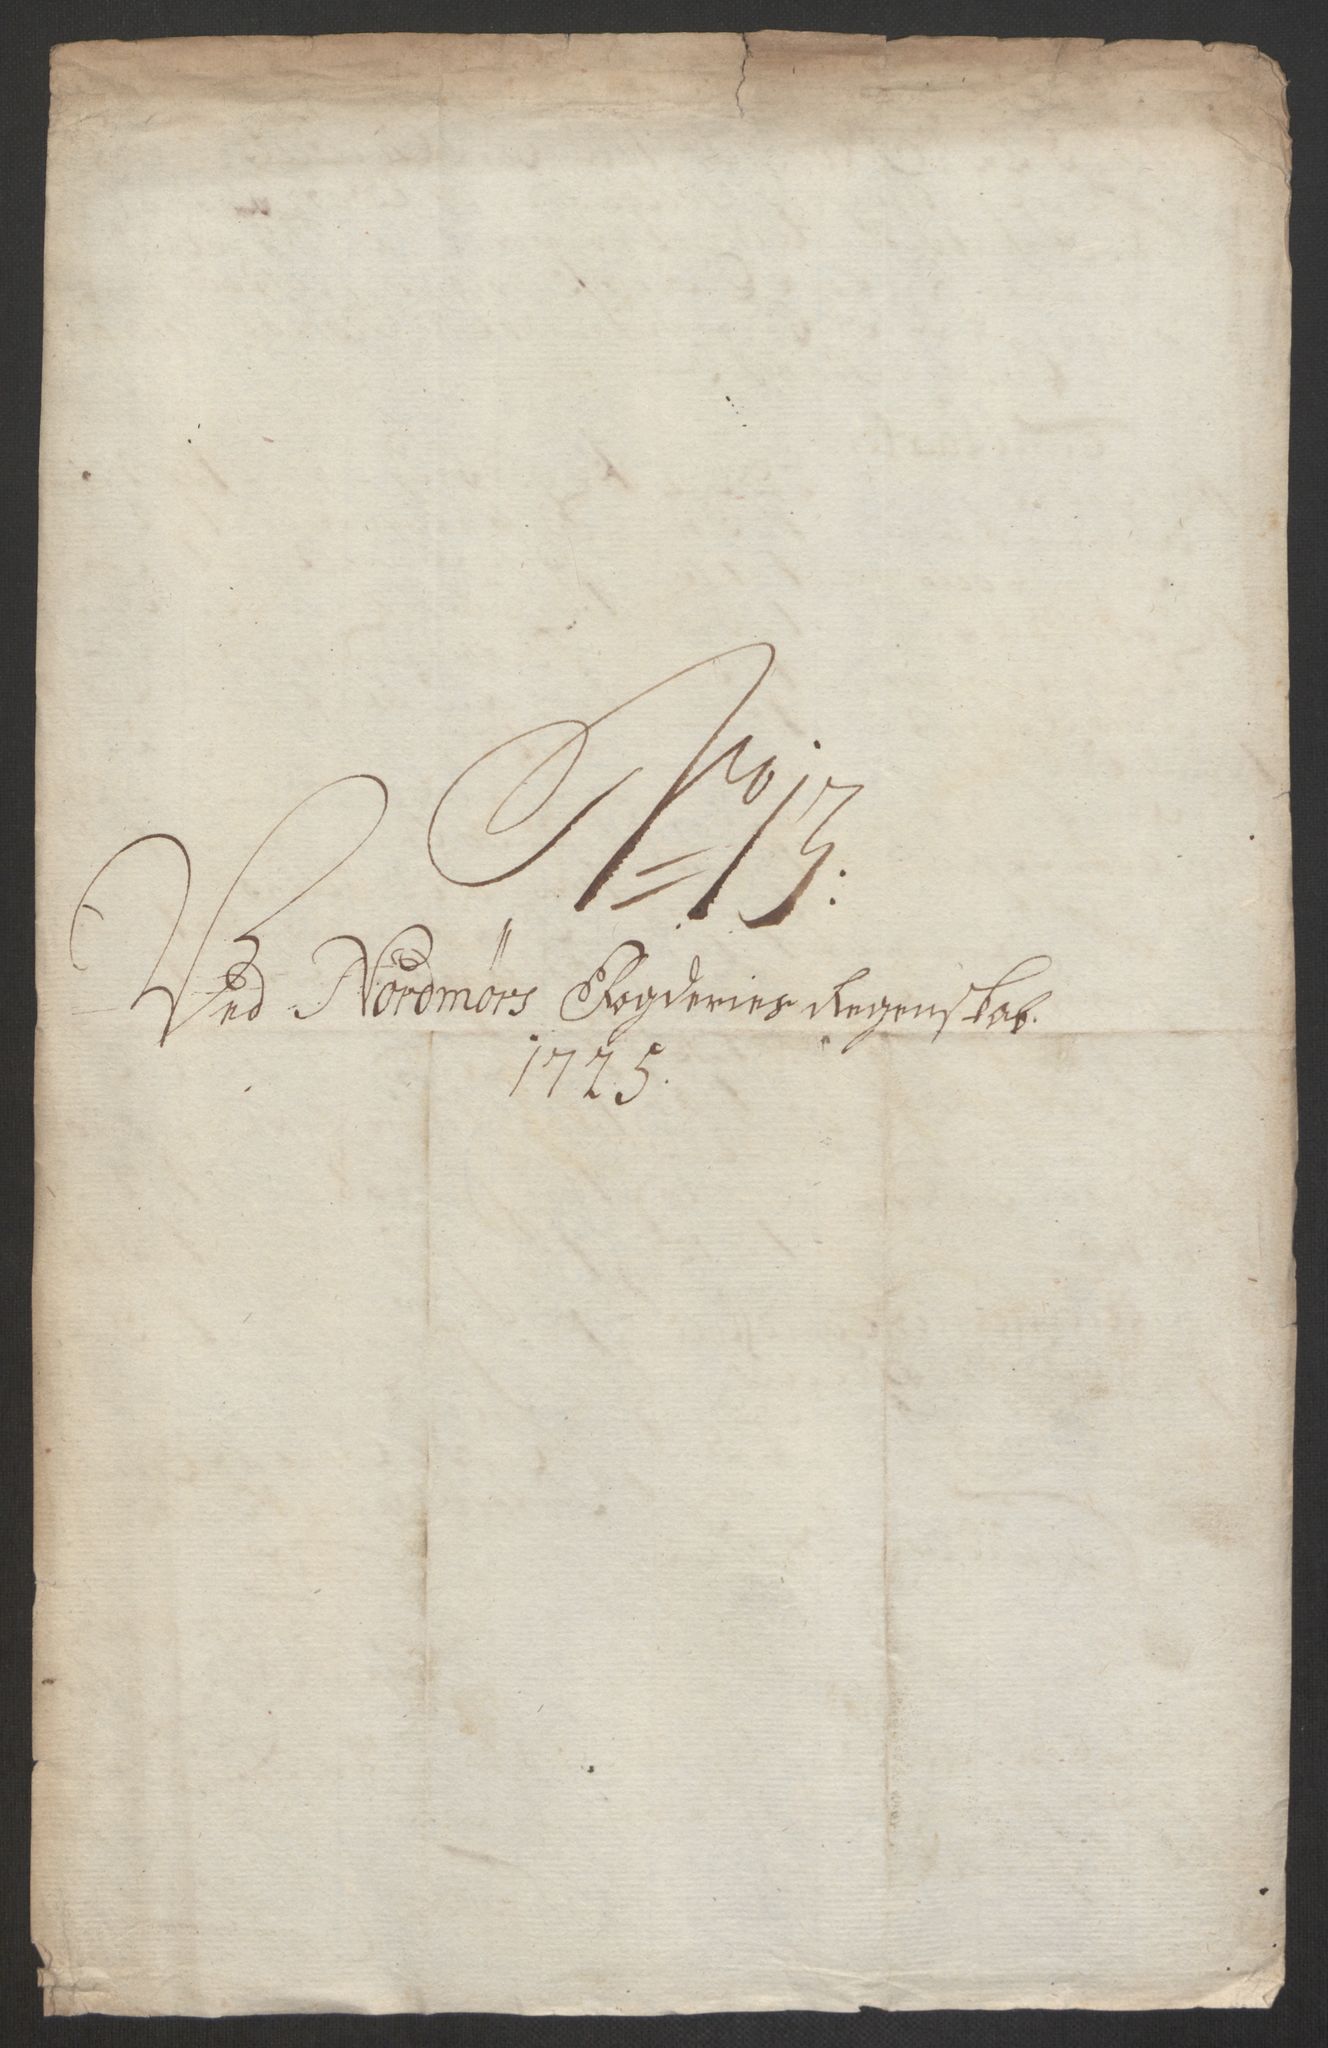 No 13.
Ved Nordmørs Fogderies Regenskab.
1725.